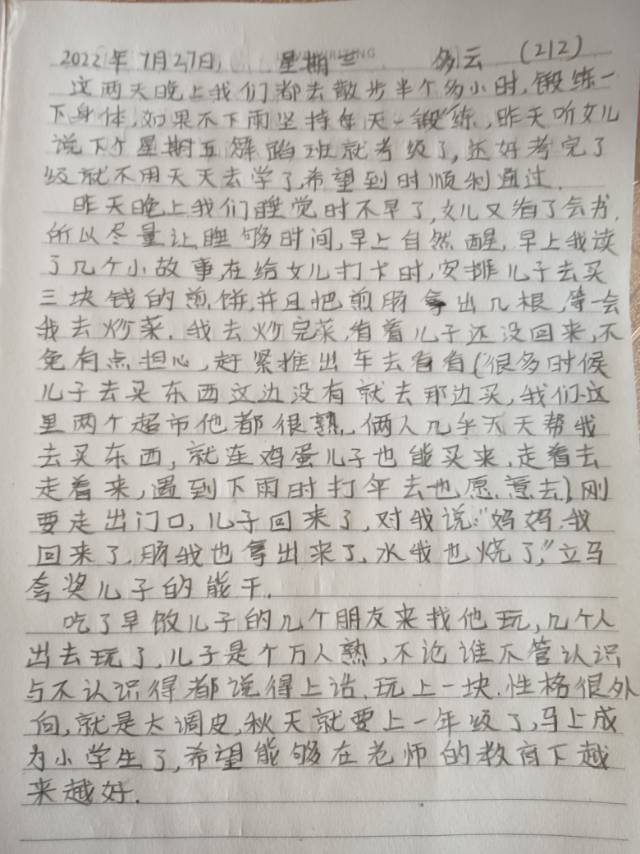 2022年7月27日, 星期三 多云 (212)
这两天晚上我们都去散步半个多小时,锻练一
下身体,如果不下雨坚持每天一锻练,昨天听女儿
说下个星期五舞蹈班就考级了,还好考完了
级就不用天天去学了,希望到时顺利通过.
昨天晚上我们睡觉时不早了,女儿又看了会书,
所以尽量让睡够时间,早上自然醒,早上我读
了几个小故事,在给女儿打卡时,安排儿子去买
三块钱的煎饼,并且把煎肠拿出几根,等一会
我去炒菜.我去炒完菜,看着儿子还没回来,不
免有点担心,赶紧推出车去看看(很多时候
儿子去买东西这边没有就去那边买,我们这
里两个超市他都很熟,俩人几乎天天帮我
去买东西,就连鸡蛋儿子也能买来,走着去
走着来,遇到下雨时打伞去也愿意去)刚
要走出门口,儿子回来了,对我说:“妈妈,我
回来了,肠我也拿出来了,水我也烧了,”立马
夸奖儿子的能干.
吃了早饭儿子的几个朋友来找他玩,几个人
出去玩了,儿子是个万人熟,不论谁不管认识
与不认识得都说得上话,玩上一块,性格很外
向,就是太调皮,秋天就要上一年级了,马上成
为小学生了,希望能够在老师的教育下越
来越好.